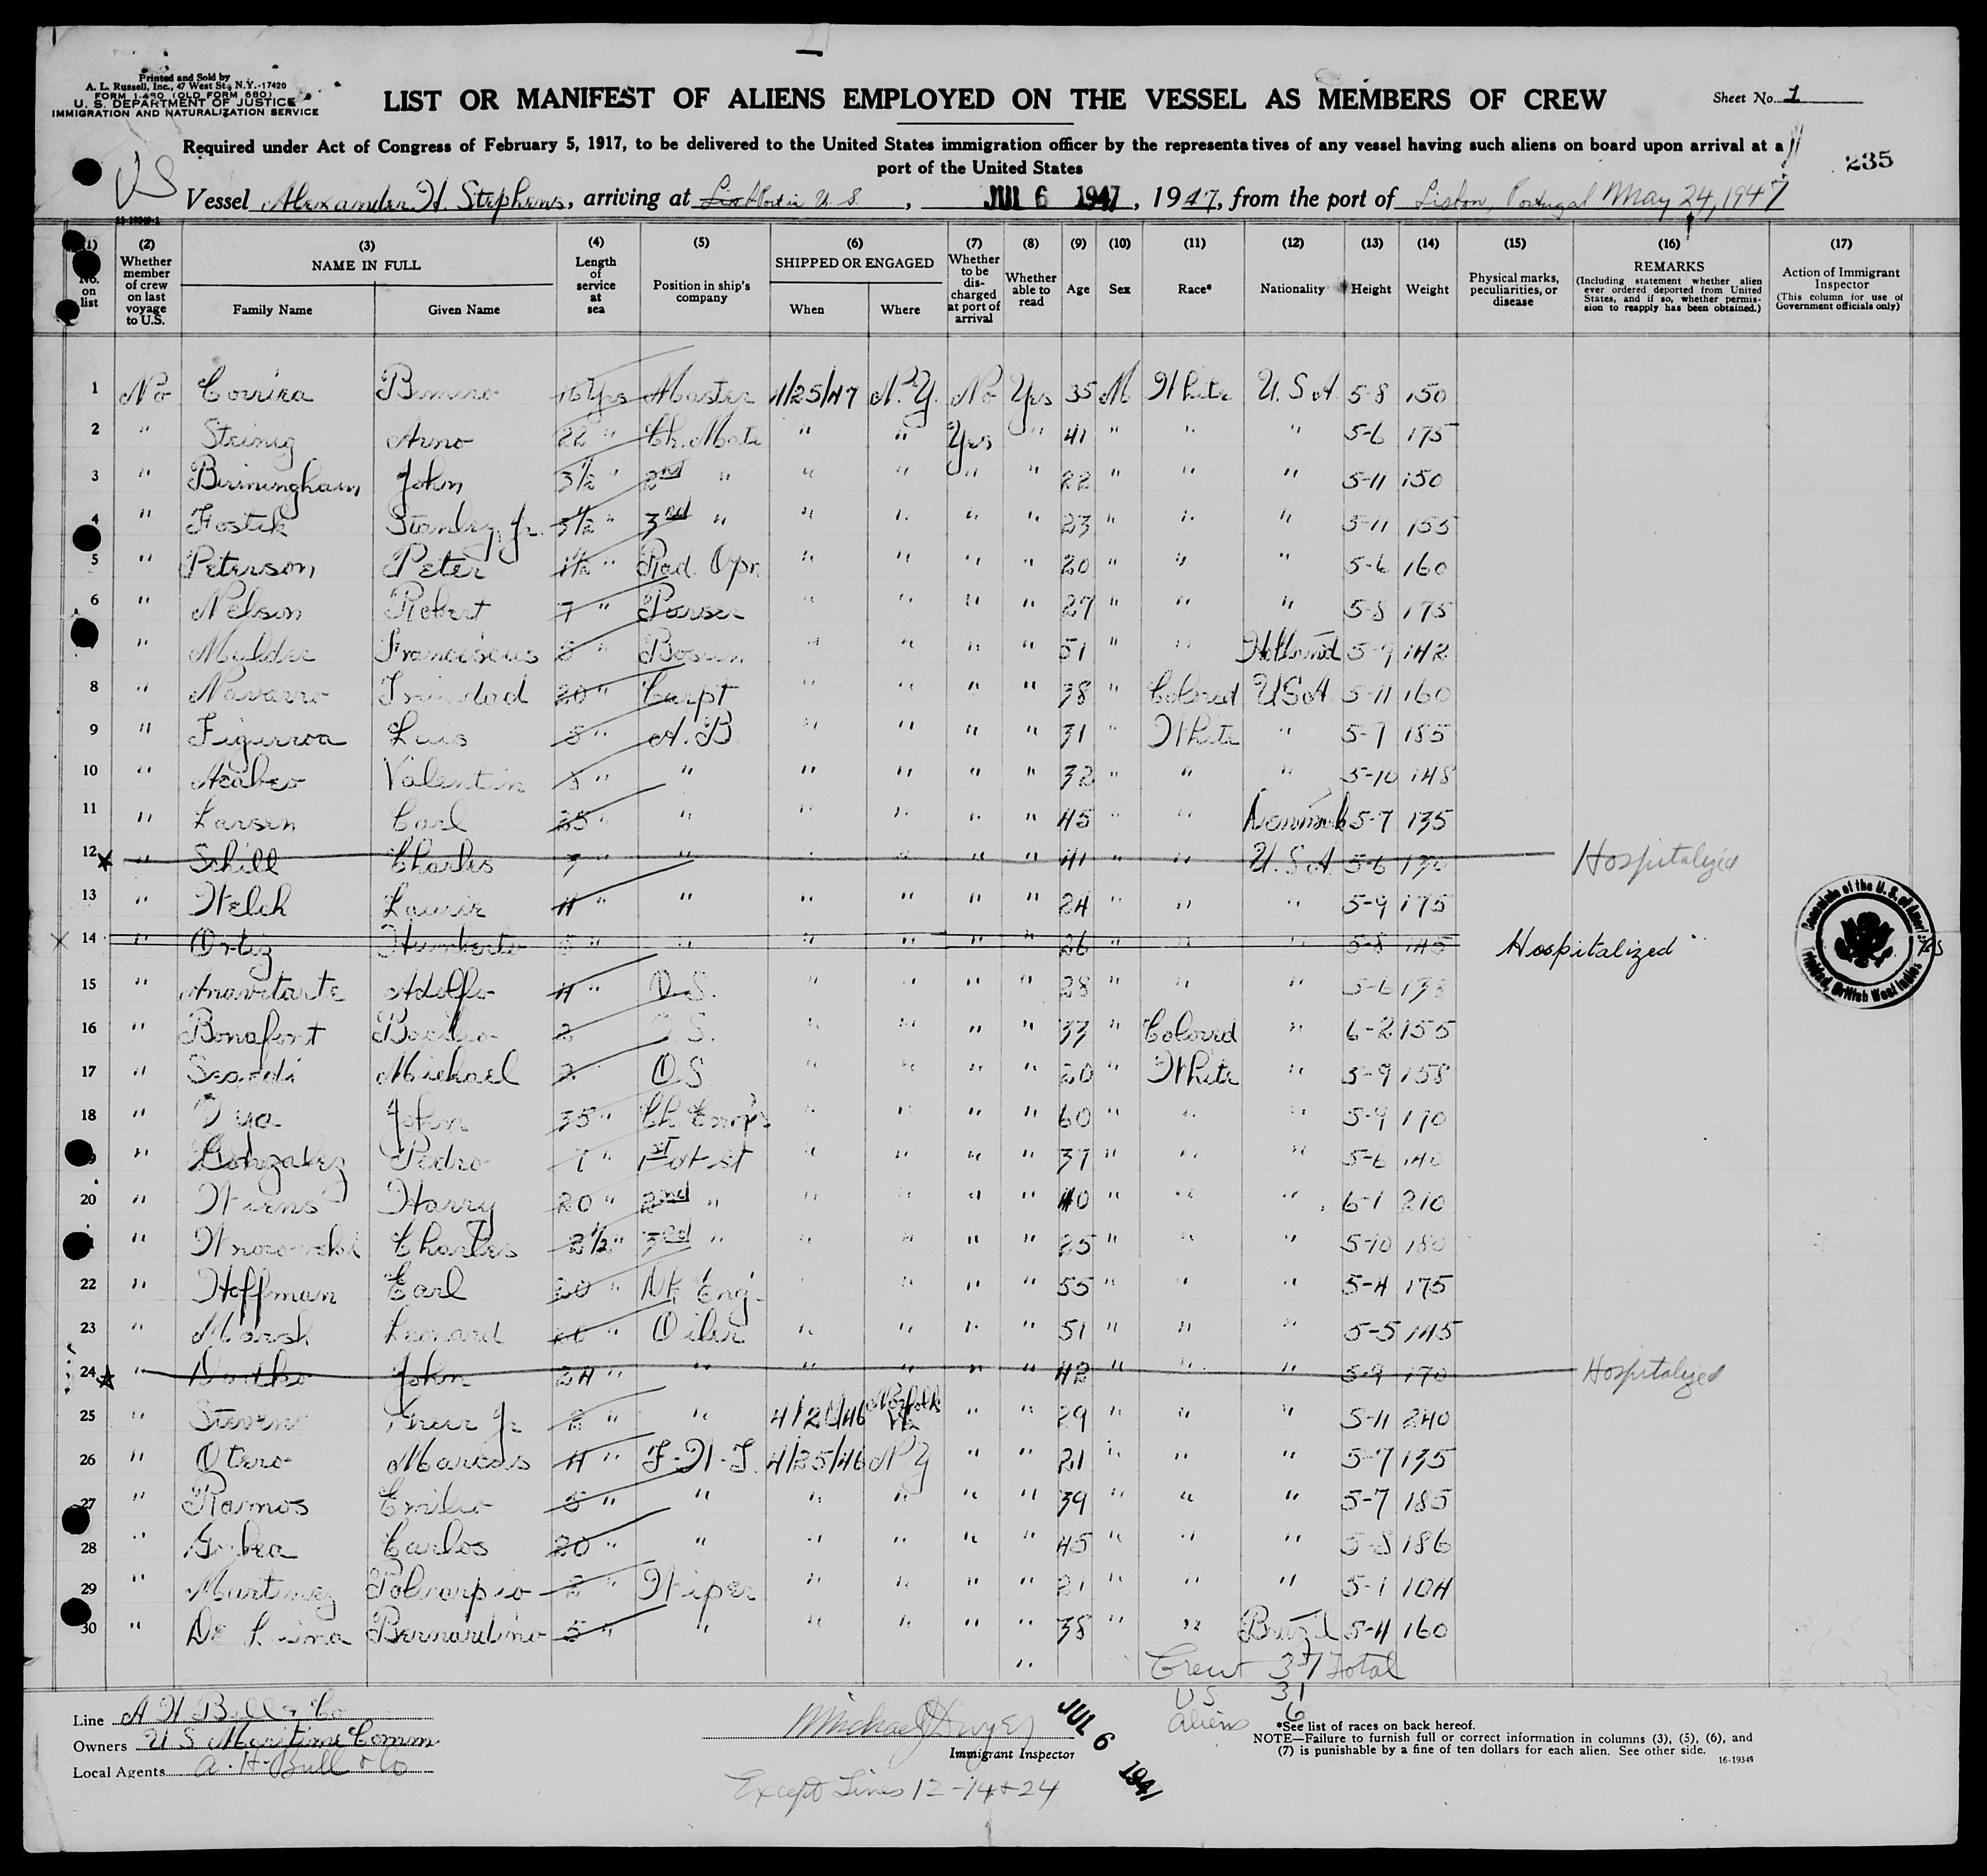 Printed and Sold by
A. L. Russell, Inc., 47 West St., N.Y.-17420
FORM I-490 (OLD FORM 680)
U. S. DEPARTMENT OF JUSTICE
IMMIGRATION AND NATURALIZATION SERVICE
LIST OR MANIFEST OF ALIENS EMPLOYED ON THE VESSEL AS MEMBERS OF CREW
Sheet No. 1
Required under Act of Congress of February 5, 1917, to be delivered to the United States immigration officer by the representatives of any vessel having such aliens on board upon arrival at a
port of the United States
235
Vessel Alexander H. Stephens, arriving at U. S., JUL 6 1947, 1947, from the port of Lisbon, Portugal May 24, 1947
(1) No. on list
(2) Whether member of crew on last voyage to U.S.
(3) NAME IN FULL Family Name Given Name
(4) Length of service at sea
(5) Position in ship's company
(6) SHIPPED OR ENGAGED When Where
(7) Whether to be discharged at port of arrival
(8) Whether able to read
(9) Age
(10) Sex
(11) Race*
(12) Nationality
(13) Height
(14) Weight
(15) Physical marks, peculiarities, or disease
(16) REMARKS (Including statement whether alien ever ordered deported from United States, and if so, whether permission to reapply has been obtained.)
(17) Action of Immigrant Inspector (This column for use of Government officials only)
1 No Corriea 16 Yrs Master 4/25/47 N.Y. No Yes 35 M White U.S.A. 5-8 150
2 " Steinig Arno 22 " Ch. Mate " " Yes " 41 " " " 5-6 175
3 " Birmingham John 3½ " 2nd " " " " " 22 " " " 5-11 150
4 " Fostek Stanley, Jr. 3½ " 3rd " " " " " 23 " " " 5-11 155
5 " Peterson Peter 1½ " Rad. Opr. " " " " 20 " " " 5-6 160
6 " Nelson Robert 7 " Purser " " " " 27 " " " 5-8 175
" Mulder Franciscus " Bosun " " " " 51 " " Holland 5-9 142
8 " Navarro Trinidad 20 " Carpt " " " " 38 " Colored USA 5-11 160
9 " Figueroa Luis 5 " A.B. " " " " 31 " White " 5-7 185
10 " Valentin " " " " " " 32 " " " 5-10 148
11 " Larsen Carl 25 " " " " " " 45 " " Denmark 5-7 135
12 " Schill Charles 7 " " " " " " 41 " " U.S.A. 5-6 130 Hospitalized
13 " Welch Laurie 4 " " " " " " 24 " " " 5-9 175
14 " Ortiz Humberto 5 " " " " " " 26 " " " 5-8 145 Hospitalized
15 " Anavitarte Adolfo 4 " O.S. " " " " 28 " " " 5-6 138
16 " Bonafont Basilio 2 O.S. " " " " 33 " Colored " 6-2 155
17 " Michael 2 O.S " " " " 20 " White " 5-9 158
18 " John 35 " Ch Eng'r " " " " 60 " " " 5-9 170
" Gonzalez Pedro 7 " 1st Asst " " " " 37 " " " 5-6 140
20 " Harry 20 " 2nd " " " " " 40 " " " 6-1 210
" Charles 2½ " 3rd " " " " " 25 " " " 5-10 180
22 " Hoffman Earl 20 " Dk Eng. " " " " 55 " " " 5-4 175
23 " Marsh Leonard 20 " Oiler " " " " 51 " " " 5-5 145
24 " John 24 " " " " " " 42 " " " 5-9 170 Hospitalized
25 " Stevens Greer Jr 2 " " 4/21/46 Norfolk Va " " 29 " " " 5-11 240
26 " Otero Marcos 4 " F.W.T. 4/25/46 N Y " " 21 " " " 5-7 135
27 " Ramos Emilio 5 " " " " " " 39 " " " 5-7 185
28 " Carlos 20 " " " " " " 45 " " " 5-8 186
29 " Martinez Policarpio 2 " Wiper " " " " 21 " " " 5-1 104
30 " De Lima Bernardino 5 " " " " " " 38 " " Brazil 5-4 160
Crew 37 Total
US 31
Aliens 6
Consulate of the U. S. of America
Trinidad, British West Indies
Line A H Bull & Co
Owners U S Maritime Comm
Local Agents A. H. Bull & Co
Michael Dwyer
Immigrant Inspector
JUL 6 1947
Except Lines 12-14+24
*See list of races on back hereof.
NOTE—Failure to furnish full or correct information in columns (3), (5), (6), and
(7) is punishable by a fine of ten dollars for each alien. See other side.
16-19349